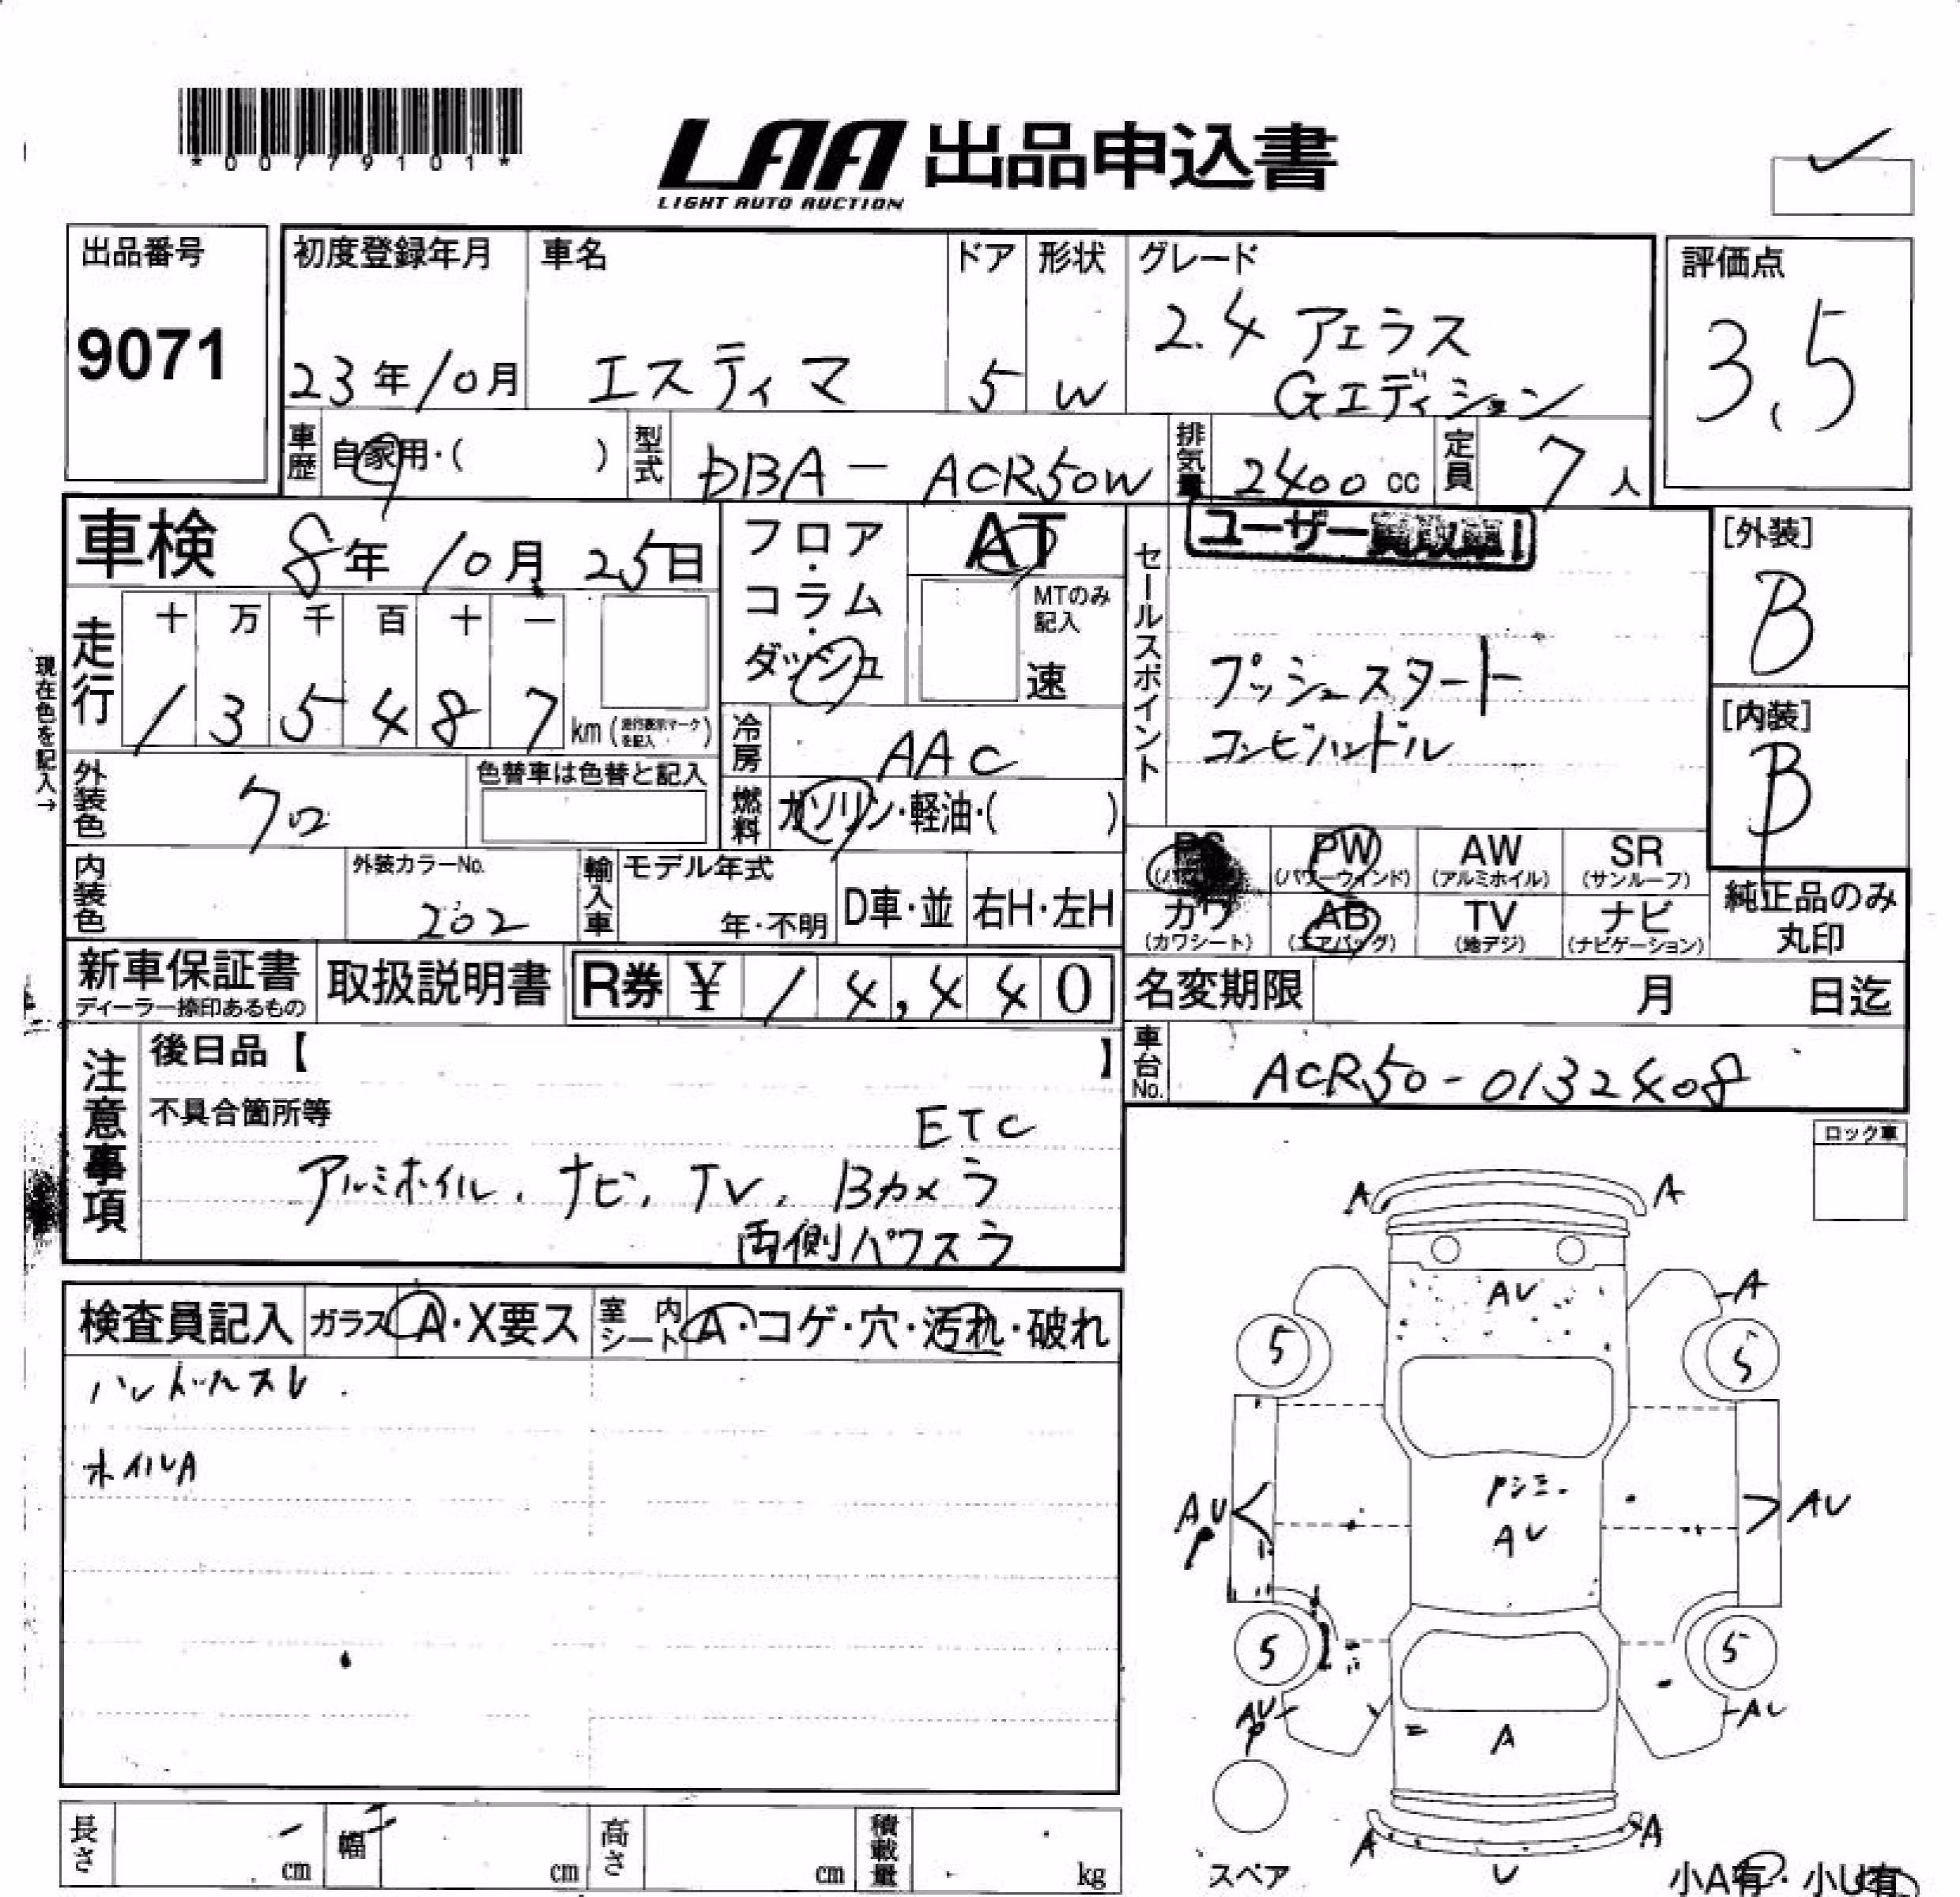 *00779101*
LAA 出品申込書
LIGHT AUTO AUCTION
出品番号
9071
初度登録年月
23年10月
車名
エスティマ
ドア
5
形状
W
グレード
2.4 アエラス
Gエディション
評価点
3.5
車歴
自家用・( )
型式
DBA-ACR50W
排気量
2400cc
定員
7人
車検 8年10月25日
フロア・コラム・ダッシュ
AT
MTのみ記入
速
セールスポイント
ユーザー買取車!
プッシュスタート
コンビハンドル
[外装]
B
[内装]
B
現在色を記入→
走行
十 万 千 百 十 一
1 3 5 4 8 7
km(走行表示マークを記入)
冷房
AAC
外装色
クロ
色替車は色替と記入
燃料
ガソリン・軽油・( )
内装色
外装カラーNo.
202
輸入車
モデル年式
年・不明
D車・並
右H・左H
PS
PW
(パワーウィンド)
AW
(アルミホイル)
SR
(サンルーフ)
カワ
(カワシート)
AB
(エアバッグ)
TV
(地デジ)
ナビ
(ナビゲーション)
純正品のみ
丸印
新車保証書
ディーラー捺印あるもの
取扱説明書
R券 ¥ 14,440
名変期限 月 日迄
車台No.
ACR50-0132408
注意事項
後日品【 】
不具合箇所等
ETC
アルミホイル、ナビ、TV、Bカメラ
両側パワスラ
ロック車
検査員記入
ガラス
A・X要ス
室内シート
A・コゲ・穴・汚れ・破れ
ハンドルスレ
ホイルA
A A
AU
A
5 5
AU
P
AU
AU
5 5
AU
P
AU
A
A A
U
スペア
小A有・小U有
長さ cm
幅 cm
高さ cm
積載量 kg